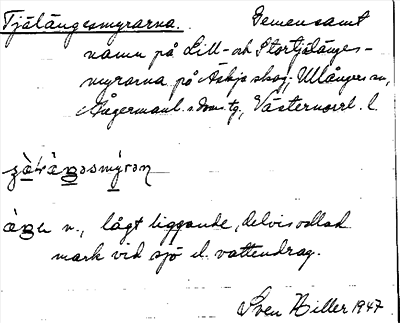 Tjälängesmyrarna. Gemensamt
namn på Lill- och Stortjälänges-
myrarna på Äskja skog; Ullånger sn,
Ångermanl. s. doms.tg, Västernorrl. l.
n., lågt liggande, delvis odlad
mark vid sjö el. vattendrag.
Sven Hiller 1947